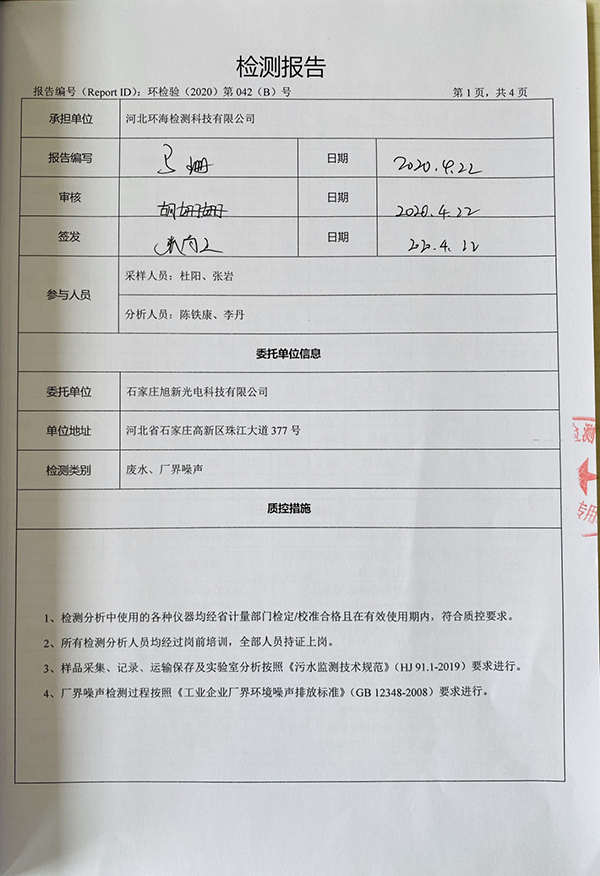 检测报告
报告编号（Report ID）：环检验（2020）第 042（B）号 第 1 页，共 4 页
承担单位 河北环海检测科技有限公司
报告编写 日期 2020.4.22
审核 胡姗姗 日期 2020.4.22
签发 日期 2020.4.22
参与人员
采样人员：杜阳、张岩
分析人员：陈铁康、李丹
委托单位信息
委托单位 石家庄旭新光电科技有限公司
单位地址 河北省石家庄高新区珠江大道 377 号
检测类别 废水、厂界噪声
质控措施
1、检测分析中使用的各种仪器均经省计量部门检定/校准合格且在有效使用期内，符合质控要求。
2、所有检测分析人员均经过岗前培训，全部人员持证上岗。
3、样品采集、记录、运输保存及实验室分析按照《污水监测技术规范》（HJ 91.1-2019）要求进行。
4、厂界噪声检测过程按照《工业企业厂界环境噪声排放标准》（GB 12348-2008）要求进行。
检测
专用